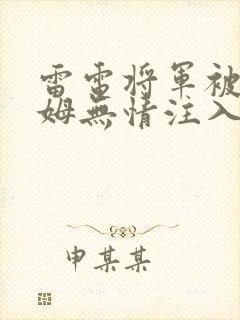 雷電将軍被
姆無情注入
申某某